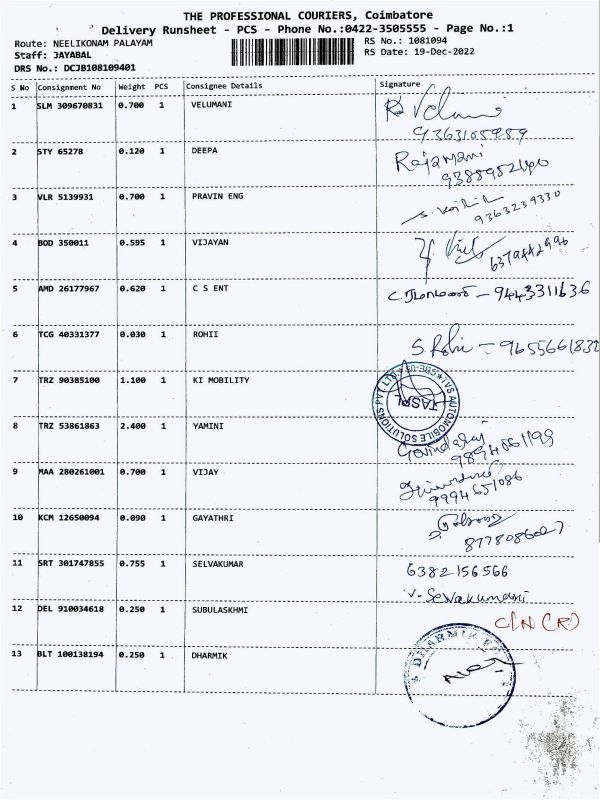 THE PROFESSIONAL COURIERS, Coimbatore
Delivery Runsheet - PCS - Phone No.:0422-3505555 - Page No.:1
Route: NEELIKONAM PALAYAM
RS No.: 1081094
Staff: JAYABAL
RS Date: 19-Dec-2022
DRS No.: DCJB108109401
S No Consignment No Weight PCS Consignee Details Signature
1 SLM 309670831 0.700 1 VELUMANI
9363105989
2 STY 65278 0.120 1 DEEPA Rajamani
3 VLR 5139931 0.700 1 PRAVIN ENG
9363239330
4 BOD 350011 0.595 1 VIJAYAN
6379442996
5 AMD 26177967 0.620 1 C S ENT - 9443311636
6 TCG 40331377 0.030 1 ROHII S. Rohi - 9655661832
7 TRZ 90385100 1.100 1 KI MOBILITY
TVS AUTOMOBILE SOLUTIONS PVT LTD
TASPL
8 TRZ 53861863 2.400 1 YAMINI Govindaraj
9894061199
9 MAA 280261001 0.700 1 VIJAY
9994651086
10 KCM 12650094 0.090 1 GAYATHRI
8778086027
11 SRT 301747855 0.755 1 SELVAKUMAR 6382156566
V. Selvakumani
12 DEL 910034618 0.250 1 SUBULASKHMI C/N (R)
13 BLT 100138194 0.250 1 DHARMIK
DHARMIK